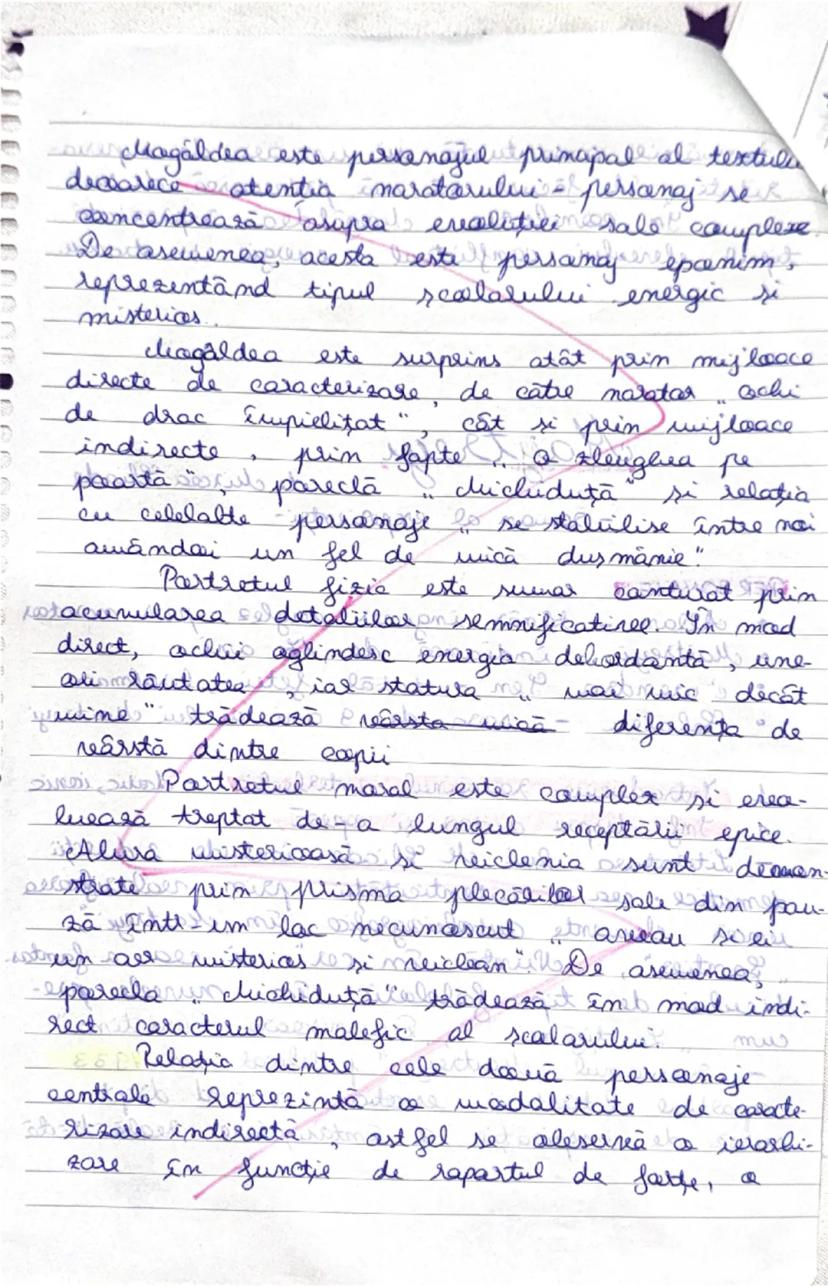 Mogâldea este personajul principal al textului
deoarece atenția naratorului-personaj se
concentrează asupra evoluției sale complexe.
De asemenea, acesta este personaj eponim,
reprezentând tipul școlarului energic și
misterios.
Mogâldea este surprins atât prin mijloace
directe de caracterizare, de către narator „ochi
de drac împielițat", cât și prin mijloace
indirecte, prin fapte „o zbughea pe
poartă", poreclă „Michiduță" și relația
cu celelalte personaje „se stabilise între noi
amândoi un fel de mică dușmănie"
Portretul fizic este sumar conturat prin
acumularea detaliilor semnificative. În mod
direct, ochii oglindesc energia debordantă, une-
ori răutatea, iar statura „mai mic decât
mine" trădează vârsta mică diferența de
vârstă dintre copii
Portretul moral este complex și evo-
luează treptat de-a lungul receptării epice.
Alura misterioasă și viclenia sunt demon-
strate prin prisma plecărilor sale din pau-
ză într-un loc necunoscut „aveau și ei
un aer misterios și viclean" De asemenea,
porecla „Michiduță" trădează în mod indi-
rect caracterul malefic al școlarului.
Relația dintre cele două personaje
centrale reprezintă o modalitate de caracte-
rizare indirectă, astfel se observă o ierarhi-
zare în funcție de raportul de forțe, o